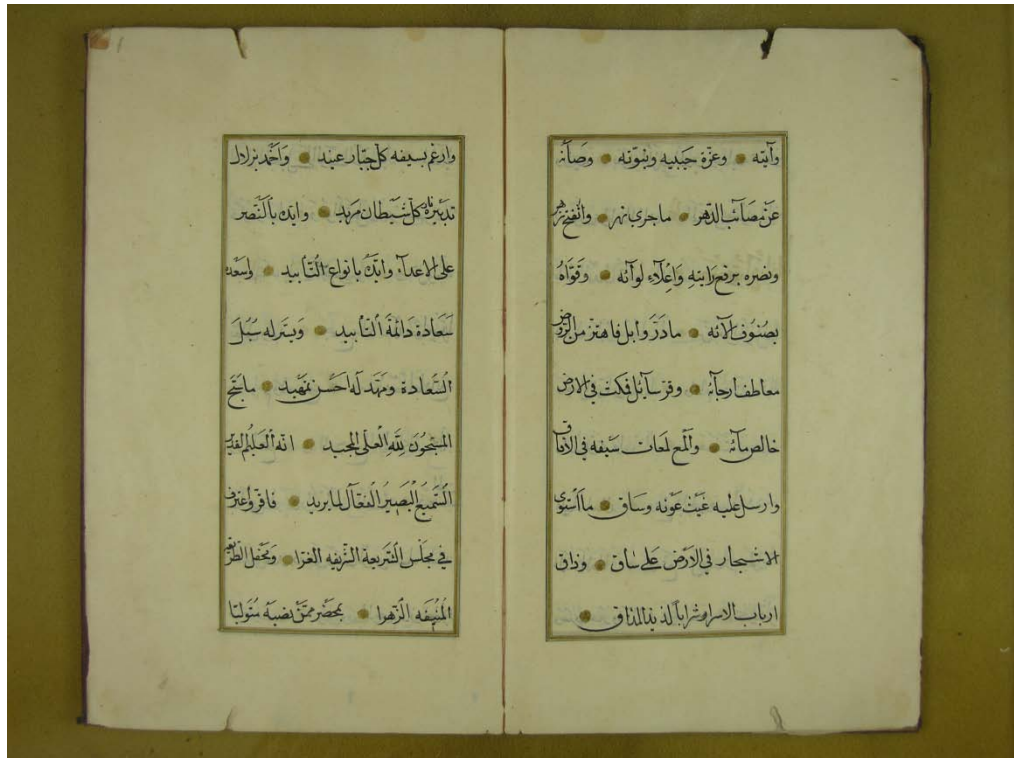 وآيته وعزة حبيبه ونبوته وصانه
عن مصائب الدهر ما جرى نهر وانفتح زهر
ونصره برفع رايته واعلاء لوائه وقواه
بصنوف الآئه ما درّ وابل فاهتز من الروض
معاطف ارجائه وقر سائل فمكث في الارض
خالص مائه وألمع لمعات سيفه في الآفاق
وارسل عليه غيث عونه وساق ما استوى
الاشجار في الارض على ساق وذاق
ارباب الاسرار شراباً لذيذ المذاق
وارغم بسيفه كل جبار عنيد واخمد بزلال
تدبيره نار كل شيطان مريد وايده بالنصر
على الاعداء وايده بانواع التأييد واسعده
سعادة دائمة التأبيد ويسر له سبل
السعادة ومهد له احسن تمهيد ما سبح
المسبحون لله العلي المجيد انه العليم القدير
السميع البصير الفعال لما يريد فاقر واعترف
في مجلس الشريعة الشريفه الغرا ومحفل الطريقه
المنيفه الزهرا بمحضر ممن نصبه متوليا